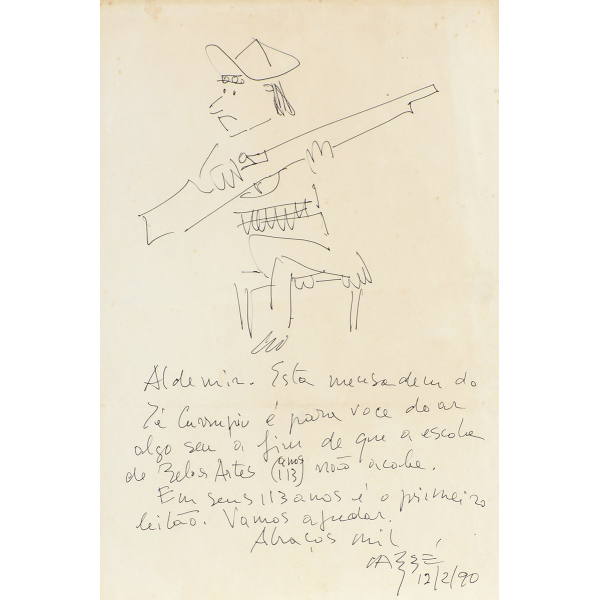 Aldemir. Esta mensadem do
Zé Currupiu é para voce doar
algo seu a fim de que a escola
de Belas Artes (anos 113) não acabe.
Em seus 113 anos é o primeiro
leilão. Vamos ajudar.
Abraços mil
12/2/90